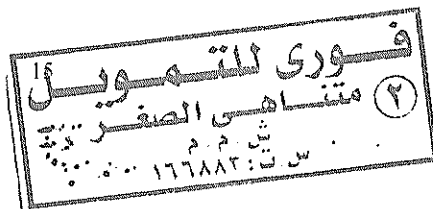 15
فورى للتمويل
متناهى الصغر ٢
ش.م.م
س.ت: ١٦٦٨٨٣